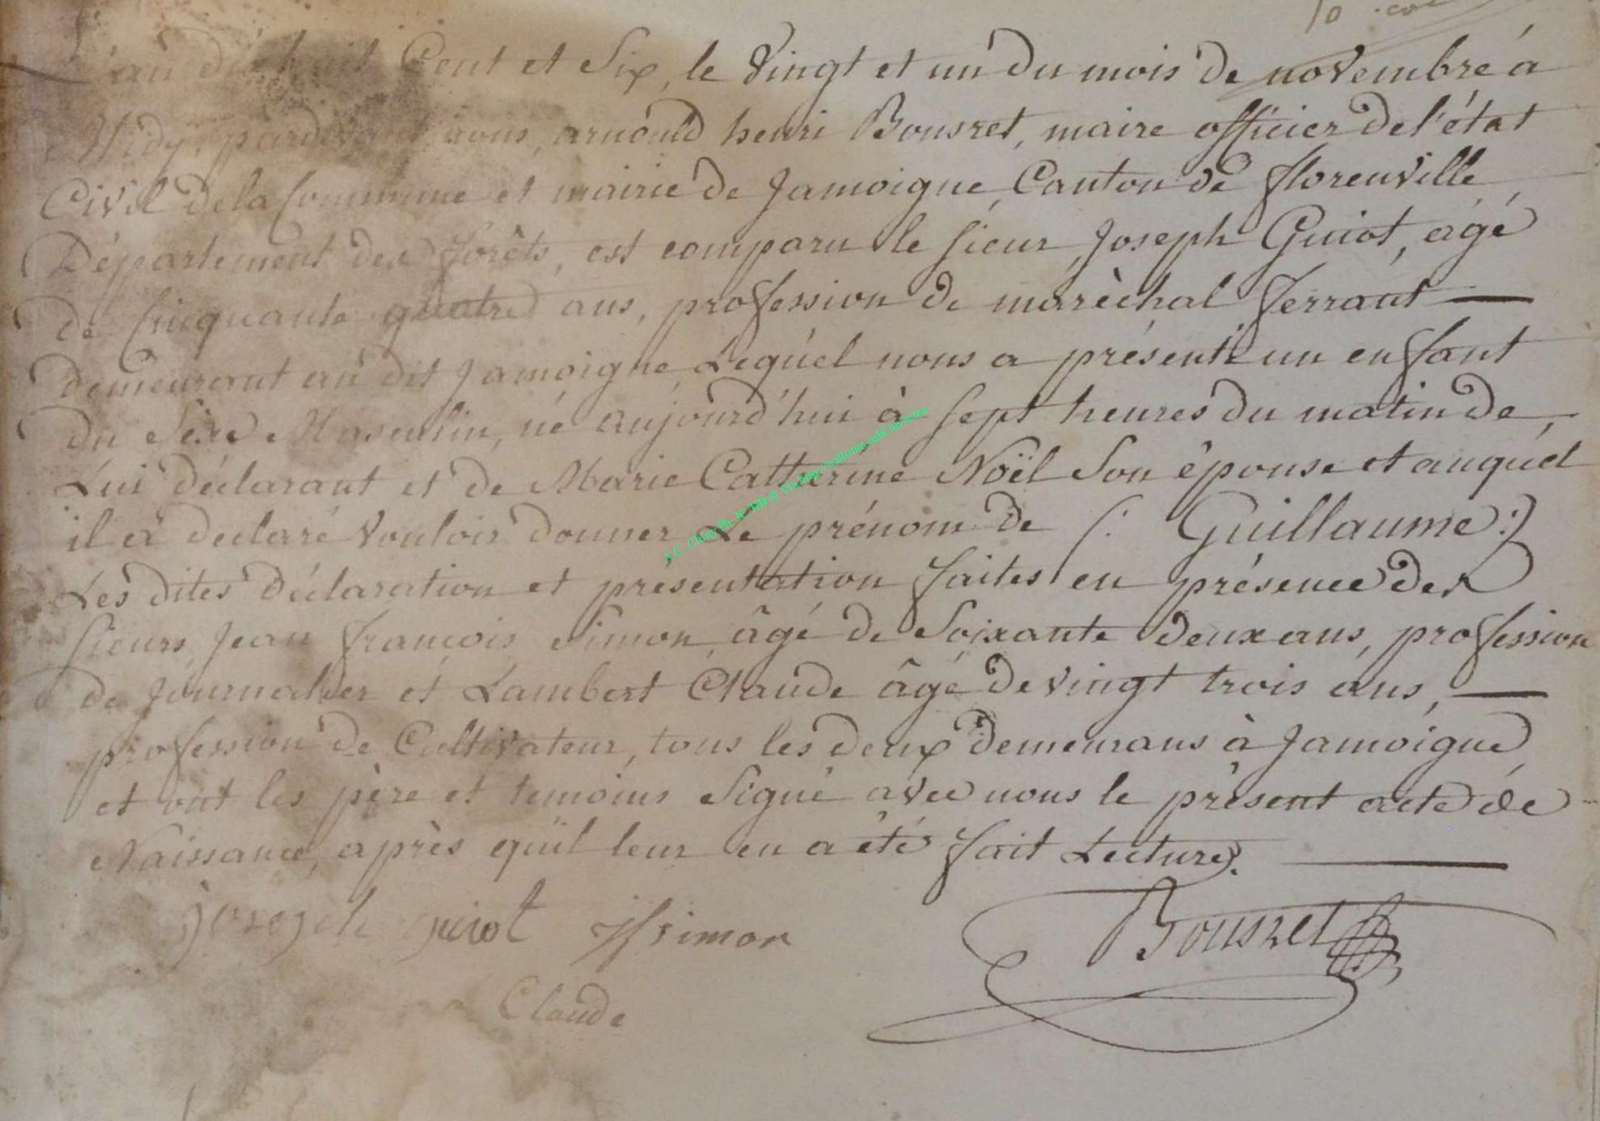 L'an dix huit Cent et Six, le Vingt et un du mois de novembre à
Midy, pardevant nous, arnould henri Bousret, maire officier de l'état
Civil de la Commune et mairie de Jamoigne, Canton de florenville,
Département des forêts, est comparu le sieur, Joseph Guiot, âgé
de Cinquante quatre ans, profession de maréchal ferrant
demeurant au dit Jamoigne, Lequel nous a présenté un enfant
du Sexe Masculin, né aujourd'hui à sept heures du matin de,
Lui déclarant et de Marie Catherine Noël Son épouse et auquel
il a déclaré Vouloir donner Le prénom de (: Guillaume :)
Les dites déclaration et présentation faites en présence des
sieurs, Jean françois Simon, âgé de Soixante deux ans, profession
de Journalier et Lambert Claude âgé de vingt trois ans,
profession de Cultivateur, tous les deux demeurans à Jamoigne,
et ont les père et temoins Signé avec nous le présent acte de
Naissance, après qu'il leur en a été fait Lecture.
joseph guiot jfsimon
Bousret
Claude